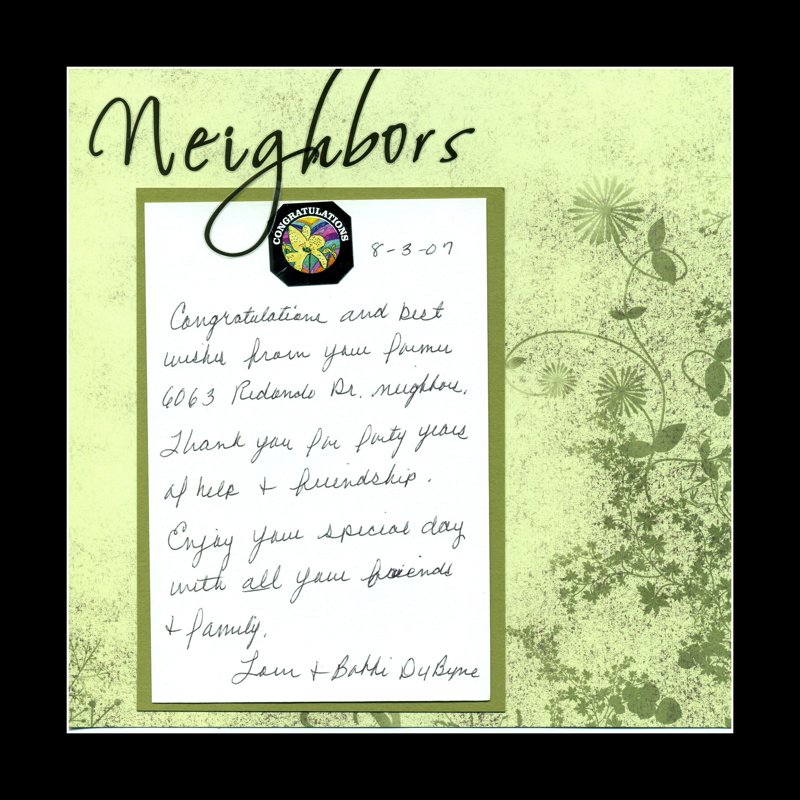 Neighbors
CONGRATULATIONS
8-3-07
Congratulations and best
wishes from your former
6063 Redondo Dr. neighbors.
Thank you for forty years
of help & friendship.
Enjoy your special day
with all your friends
& family.
& Bobbi DuByne